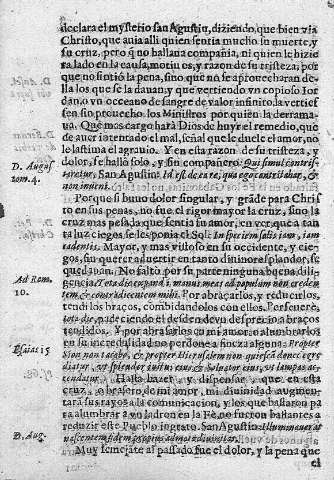 declara el mysterio san Agustin, diziendo, que bien via
Christo, que auia alli quien sentia mucho su muerte, y
su cruz, pero q̃ no hallaua compañia, ni quien le hizie
ra lado en la causa, motiuo es, y razon de su tristeza, por
que no sintio la pena, sino que no se aprouecharan de
lla los que se la dauan, y que vertiendo vn copioso Ior
dan, o vn occeano de sangre de valor infinito, la vertiesse
sin prouecho, los Ministros por quien la derrama
ua. Que mas cargo hará Dios de huyr el remedio, que
de auer intentado el mal, señal que le duele el amor, no
le lastima el agrauio. Y en esta razon de su tristeza, y
D. Augus
tom. 4.
dolor, se halló solo, y sin compañero: Qui simul contris
taretur, San Agustin: Id est de ea re, qua ego contristabar, &
non inueni.
Porque si huuo dolor singular, y grãde para Chris
to en sus penas, no fue el rigor mayor la cruz, sino la
cruz mas pesada que sintio su amor, en ver que a tan
ta luz ciegos se les ponia el Sol:
Mayor, y mas vistoso en su occidente, y cie
gos, sin querer aduertir en tanto diuino resplandor, se
quedauan. No faltó por su parte ninguna buena dili
Ad Rom.
10.
gencia: Tota die expandi manus meas ad populum non creden
tem & contradicentem mihi. Por abraçarlos, y reducirlos,
tendi los braços, combidandolos con ellos. Perseueré,
tota die, padeciendo el desden de su desprecio a braços
tendidos. Y por abrasarlos en mi amor, o alumbrarlos
en su incredulidad no perdone a fineza alguna: Propter
Esaiæ 15
Sion non tacebo, & propter Hierusalem non quiescã donec egre
diatur, vt splendor iustus eius & Saluator eius, vt lampas ac
cendatur. Hasta hazer, y dispensar que en esta
cruz, o brasero de mi amor, mi diuinidad aumen
tará sus rayos a la comunicacion, y los que bastaron pa
ra alumbrar a vn ladron en la Fè, no fueron bastantes a
D. Aug.
reducir este Pueblo ingrato. San Agustin:
Muy semejãte al passado fue el dolor, y la pena que
el